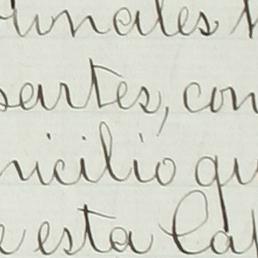 unales
partes, con
icilio qu
esta Cap